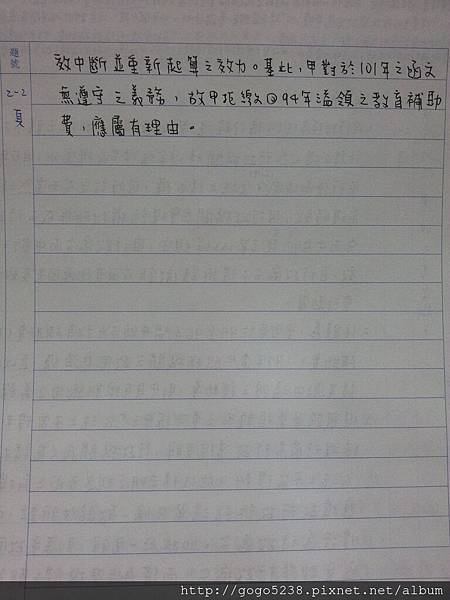 題號
效中斷並重新起算之效力。基此,甲對於101年之函文
2-2 無遵守之義務,故甲拒繳回94年溢領之教育補助
頁 費,應屬有理由。
http://gogo5238.pixnet.net/album